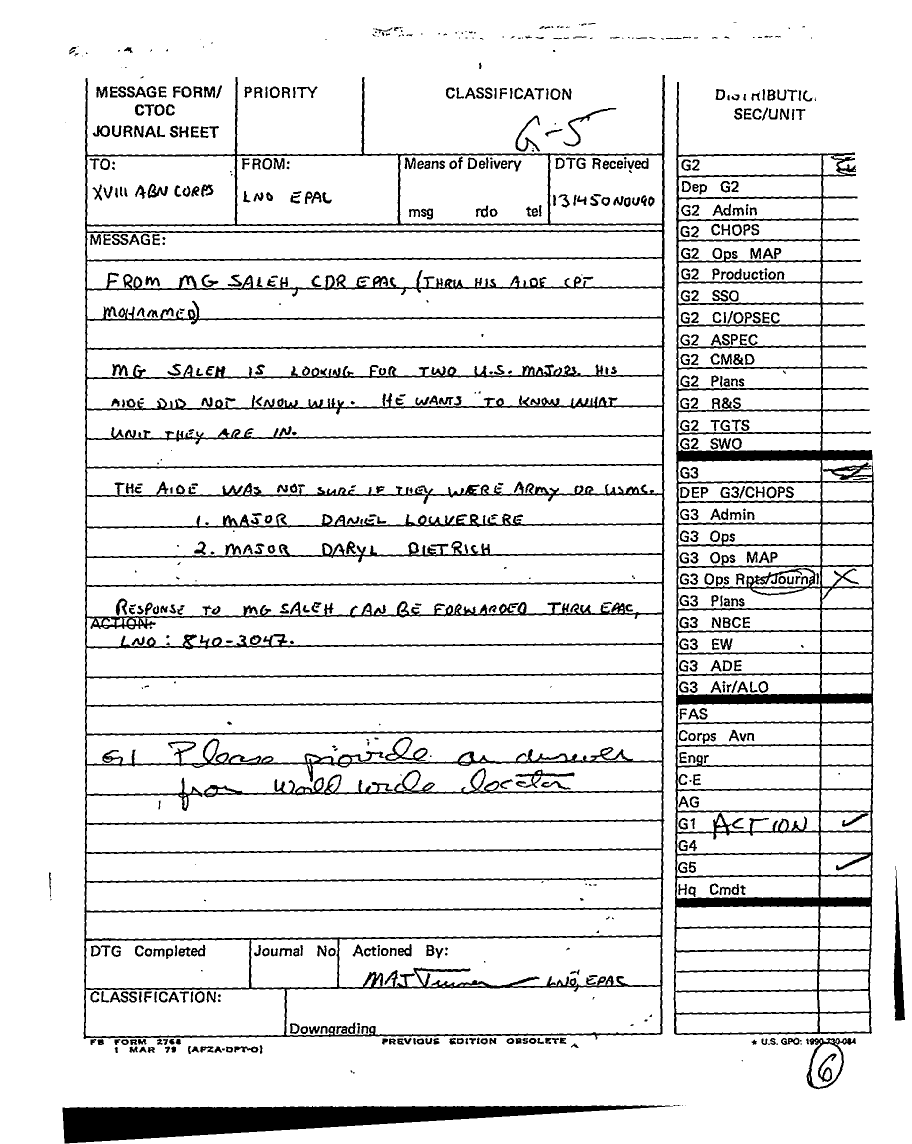 MESSAGE FORM/
CTOC
JOURNAL SHEET
PRIORITY
CLASSIFICATION
G-5
TO:
XVIII ABN CORPS
FROM:
LNO EPAC
Means of Delivery
msg rdo tel
DTG Received
131450NOV90
MESSAGE:
FROM MG SALEH, CDR EPAC, (THRU HIS AIDE CPT
MOHAMMED)
MG SALEH IS LOOKING FOR TWO U.S. MAJORS. HIS
AIDE DID NOT KNOW WHY. HE WANTS TO KNOW WHAT
UNIT THEY ARE IN.
THE AIDE WAS NOT SURE IF THEY WERE ARMY OR USMC.
1. MAJOR DANIEL LOUVERIERE
2. MAJOR DARYL DIETRICH
RESPONSE TO MG SALEH CAN BE FORWARDED THRU EPAC,
ACTION:
LNO: 840-3047.
G1 Please provide an answer
from World wide locator
DTG Completed
Journal No
Actioned By:
MAJ Turner LNO, EPAC
CLASSIFICATION:
Downgrading
FB FORM 2768
1 MAR 79 (AFZA-DPT-O)
PREVIOUS EDITION OBSOLETE
DISTRIBUTIC
SEC/UNIT
G2
Dep G2
G2 Admin
G2 CHOPS
G2 Ops MAP
G2 Production
G2 SSO
G2 CI/OPSEC
G2 ASPEC
G2 CM&D
G2 Plans
G2 R&S
G2 TGTS
G2 SWO
G3
DEP G3/CHOPS
G3 Admin
G3 Ops
G3 Ops MAP
G3 Ops Rpts/Journal X
G3 Plans
G3 NBCE
G3 EW
G3 ADE
G3 Air/ALO
FAS
Corps Avn
Engr
C-E
AG
G1 ACTION ✓
G4
G5 ✓
Hq Cmdt
★ U.S. GPO: 1990-730-084
6